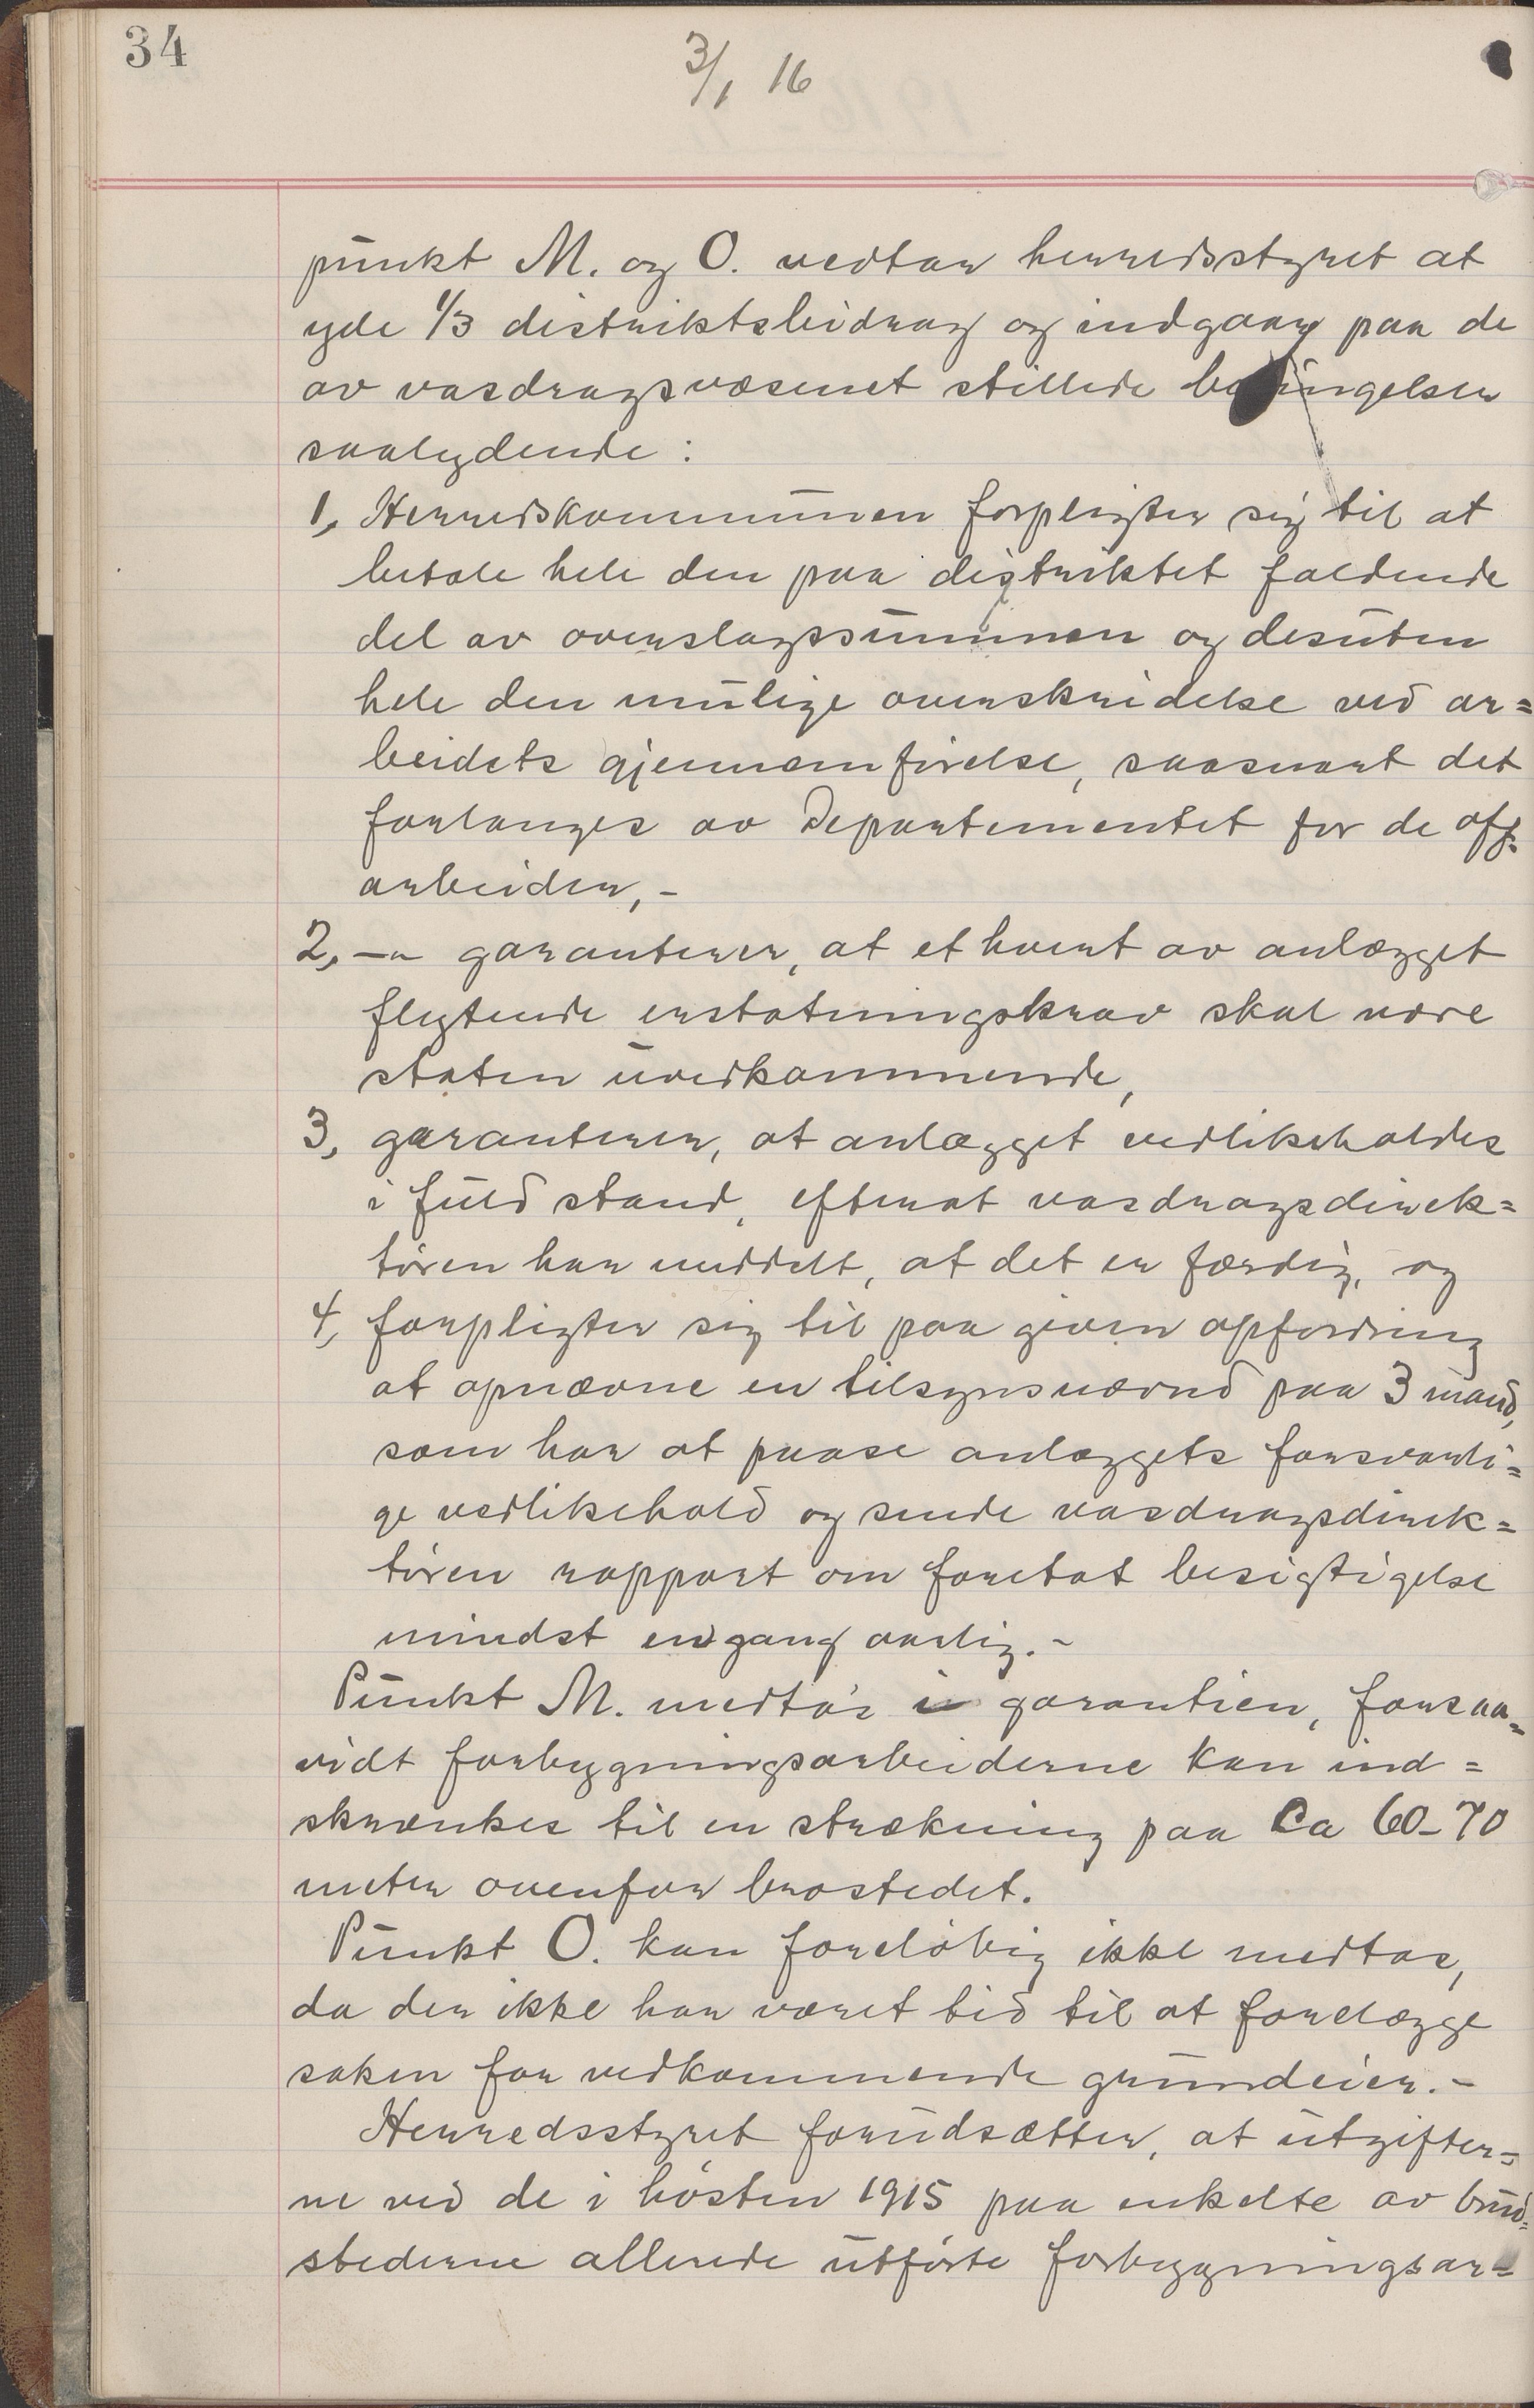 34
3/1 16
punkt M. og O. vedtar herredsstyret at
yde 1/3 distriktsbidrag og indgaar paa de
av vasdragsvæsenet stillede betingelser
saalydende:
1, Herredskommunen forpligter sig til at
betale hele den paa distriktet faldende
del av overslagssummen og desuten
hele den mulige overskridelse ved ar=
beidets gjennemførelse, saasnart det
forlanges av Departementet for de off.
arbeider,-
2, -"- garanterer, at et hvert av anlægget
flytende erstatningskrav skal være
staten uvedkommende,
3, garanterer, at anlægget vedlikeholdes
i fuld stand, efterat vasdragsdirek=
tøren har meddelt, at det er færdig, og
4, forpligter sig til paa given opfordring
at opnævne en tilsynsnævnd paa 3 mand,
som har at paase anlæggets forsvarli=
ge vedlikehold og sende vasdragsdirek=
tøren rapport om foretat besigtigelse
mindst engang aarlig.-
Punkt M. medtas i garantien, forsaa=
vidt forbygningsarbeiderne kan ind=
skrænkes til en strækning paa Ca 60-70
meter ovenfor brostedet.
Punkt O. kan foreløbig ikke medtas,
da der ikke har været tid til at forelægge
saken for vedkommende grundeier.-
Herredsstyret forudsætter, at utgifter=
ne ved de i høsten 1915 paa enkelte av brud=
stederne allerede utførte forbygningsar=